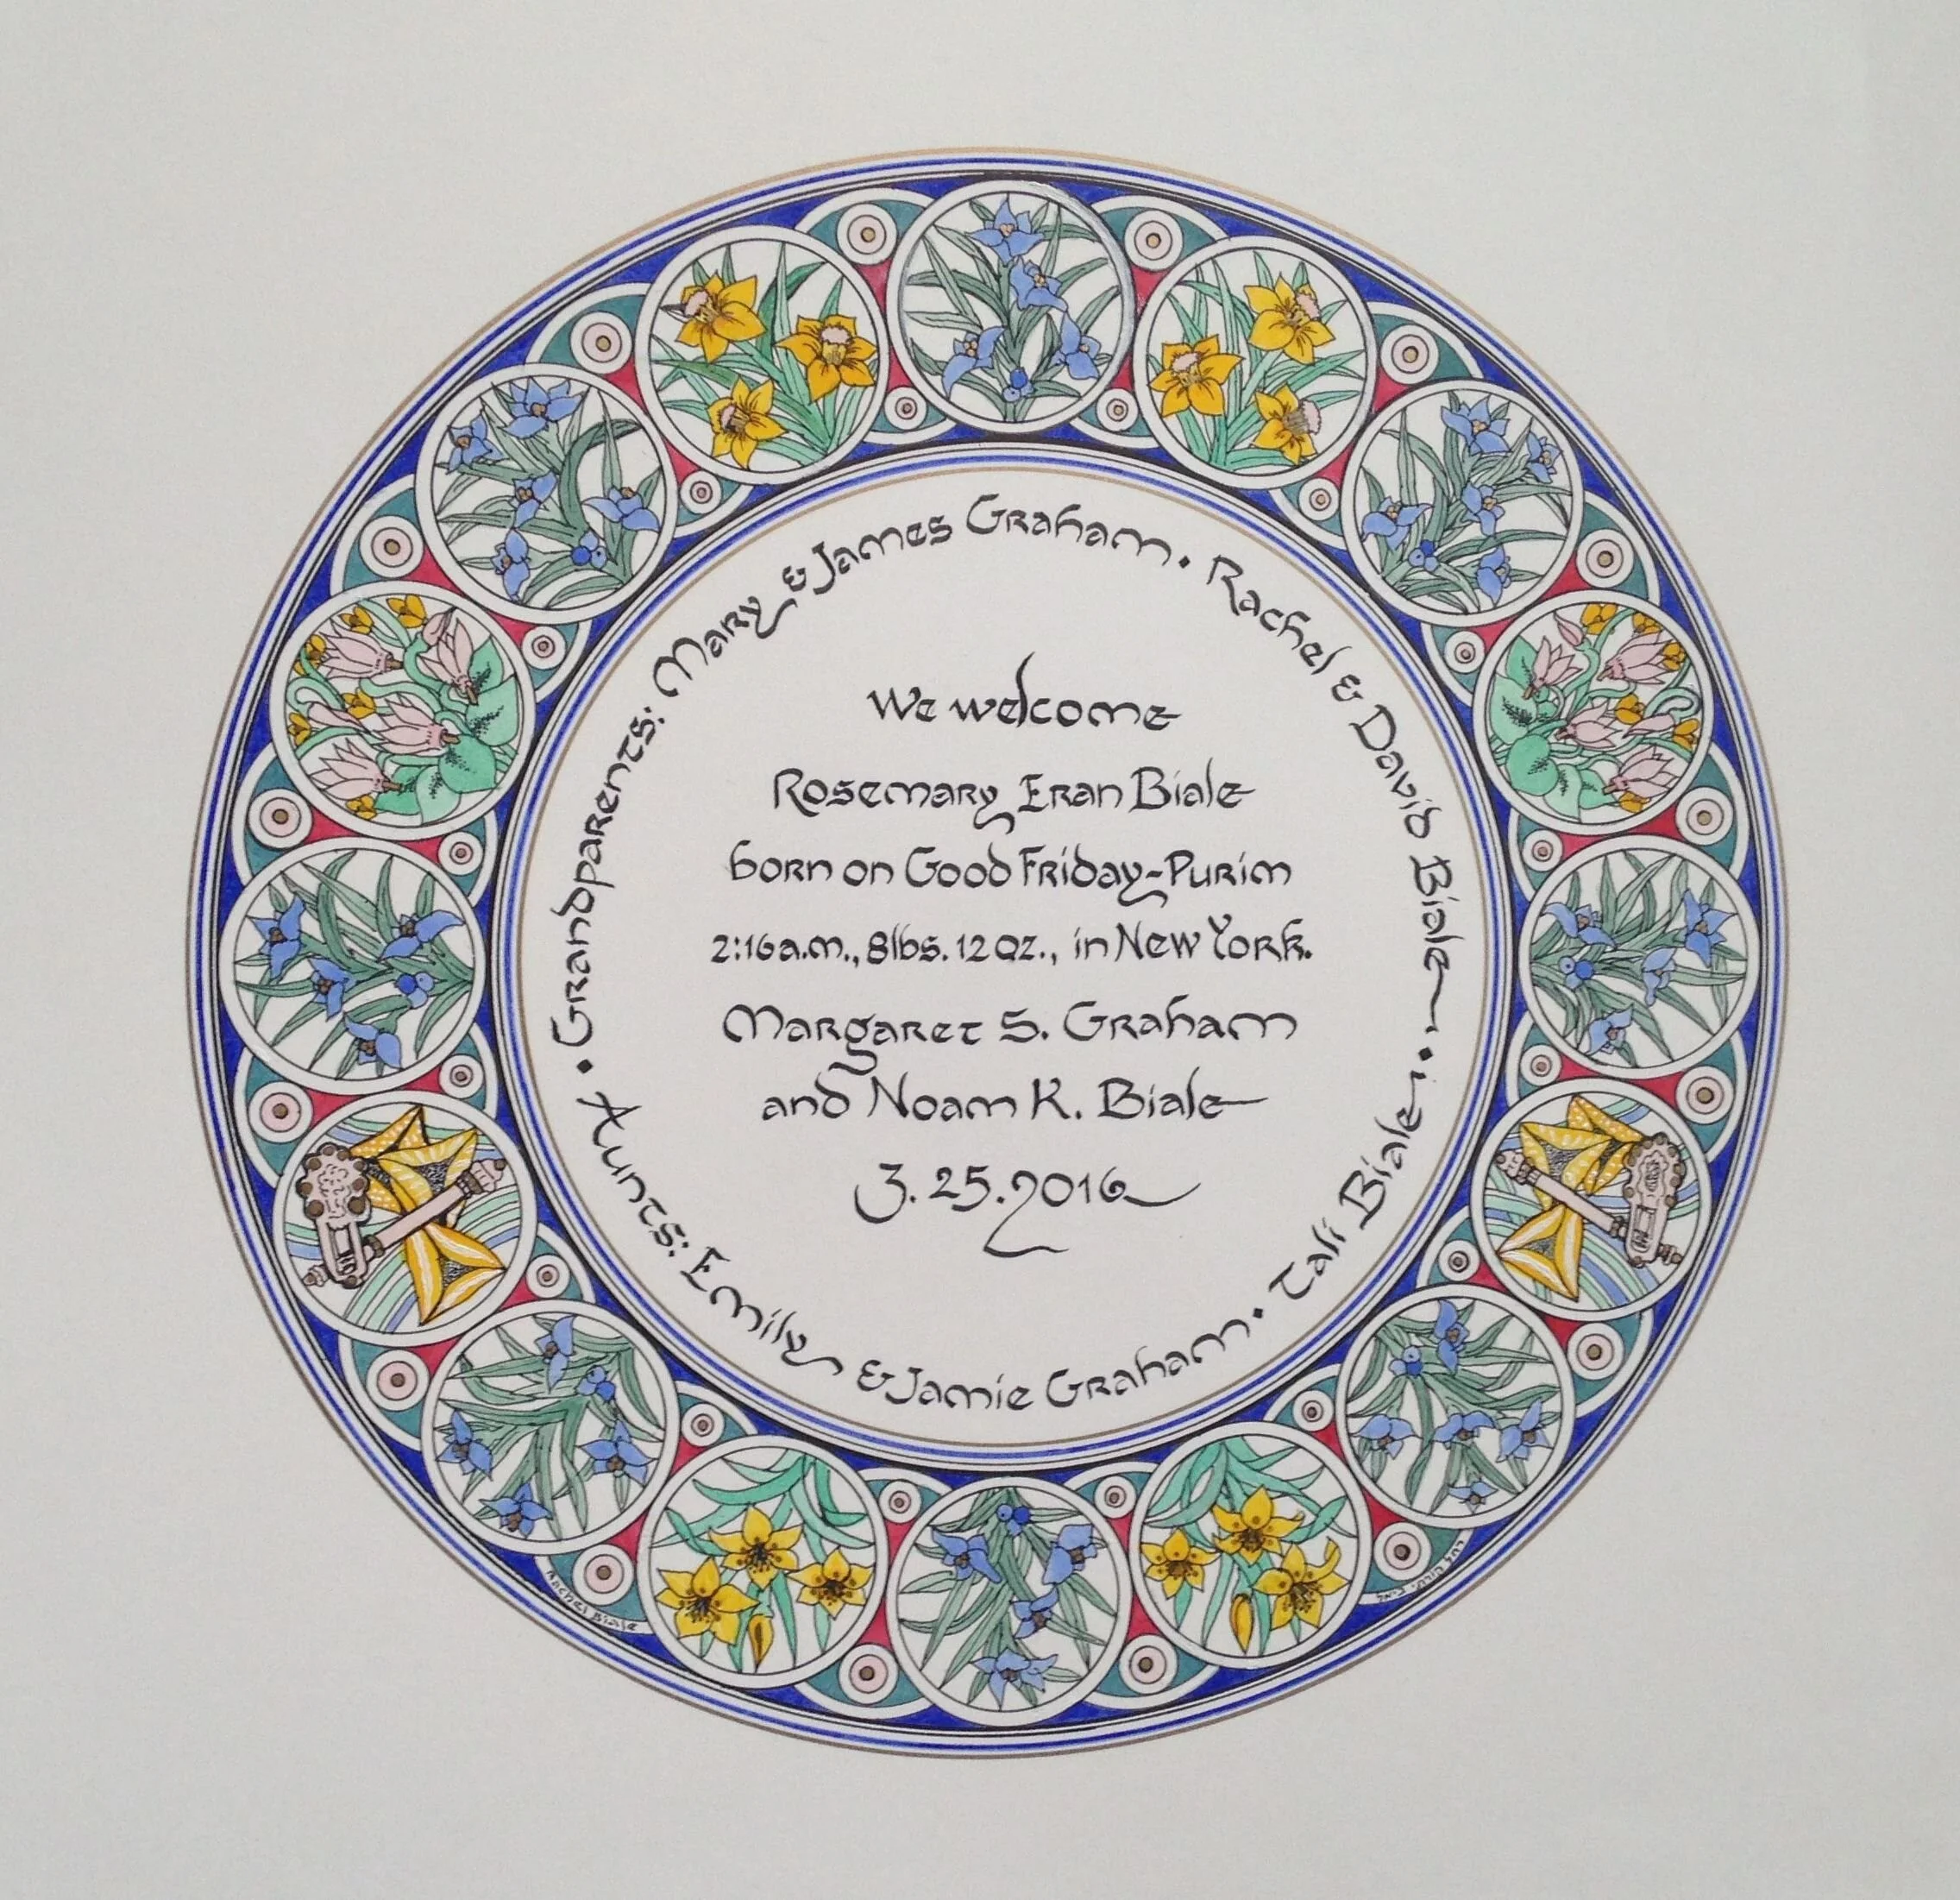 We welcome
Rosemary Eran Biale
born on Good Friday-Purim
2:16 a.m., 8 lbs. 12 oz., in New York.
Margaret S. Graham
and Noam K. Biale
3.25.2016
• Grandparents: Mary & James Graham • Rachel & David Biale •
Aunts: Emily & Jamie Graham • Tali Biale
Rachel Biale
רחל קורתי ביאל